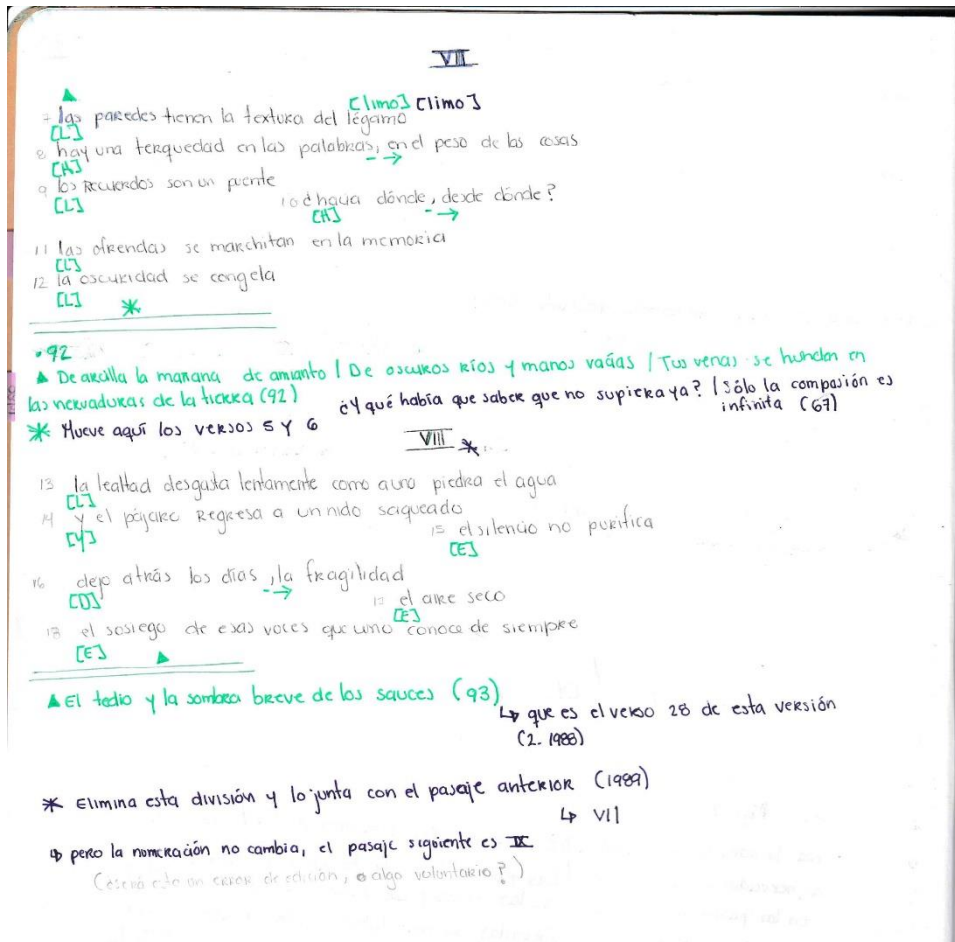 VII
[limo] [limo]
7 las paredes tienen la textura del légamo
[L]
8 hay una terquedad en las palabras, en el peso de las cosas
[H]
9 los recuerdos son un puente
[L]
10 ¿hacia dónde, desde dónde?
[H]
11 las ofrendas se marchitan en la memoria
[L]
12 la oscuridad se congela
[L]
92
De arcilla la mañana de amianto / De oscuros ríos y manos vacías / Tus venas se hunden en
las nervaduras de la tierra (92)
¿Y qué había que saber que no supiera ya? / Sólo la compasión es
infinita (67)
* Mueve aquí los versos 5 y 6
VIII *
13 la lealtad desgasta lentamente como a una piedra el agua
[L]
14 y el pájaro regresa a un nido saqueado
[Y]
15 el silencio no purifica
[E]
16 dejo atrás los días, la fragilidad
[D]
17 el aire seco
[E]
18 el sosiego de esas voces que uno conoce de siempre
[E]
El tedio y la sombra breve de los sauces (93)
↳ que es el verso 28 de esta versión
(2. 1988)
* Elimina esta división y lo junta con el pasaje anterior (1989)
↳ VII
↳ pero la numeración no cambia, el pasaje siguiente es IX
(¿será esto un error de edición, o algo voluntario?)